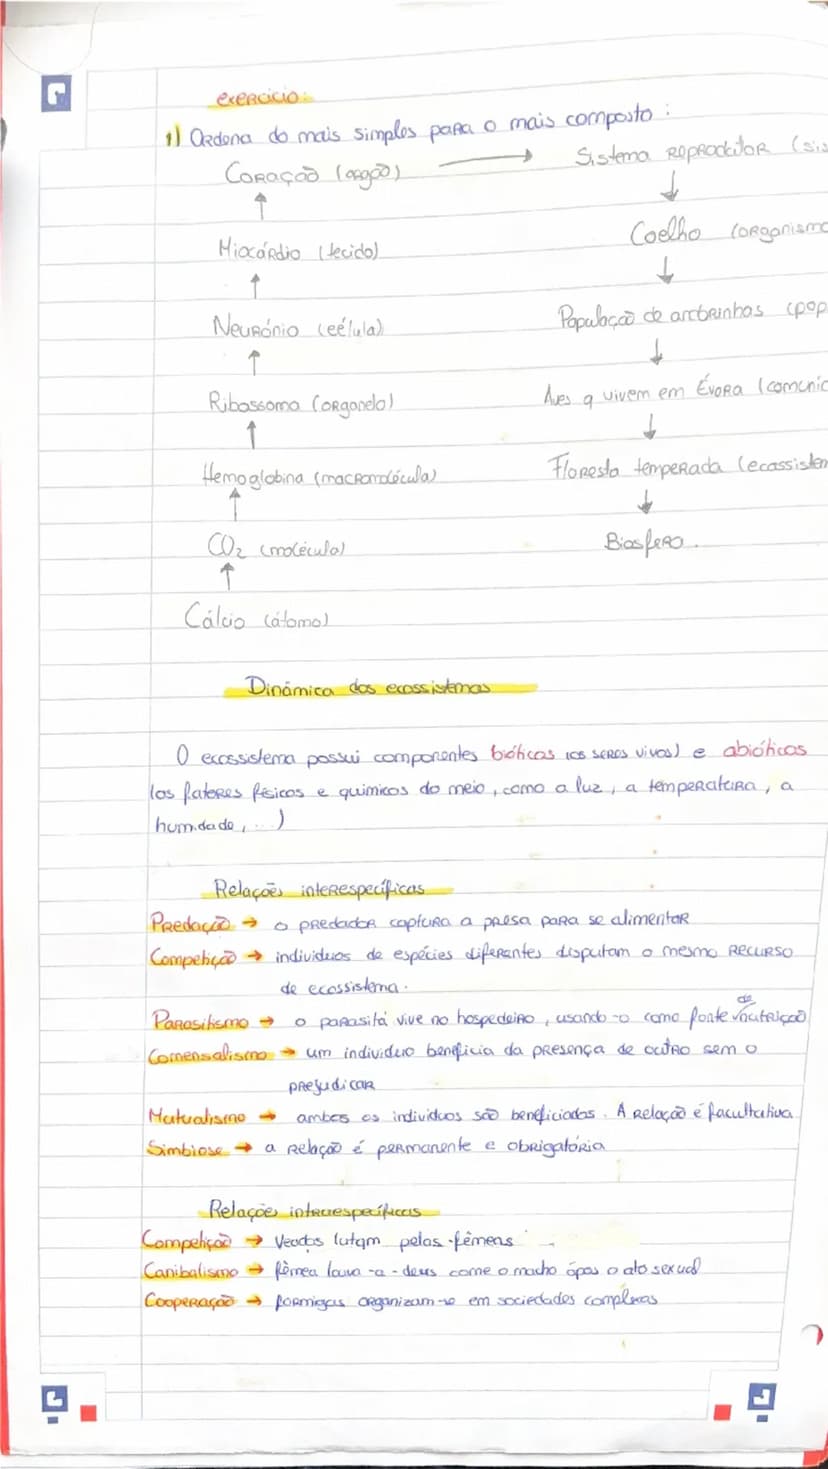 exercício:
1) Ordena do mais simples para o mais composto :
Coração (orgão) → Sistema Reprodutor (sis
↑ ↓
Miocárdio (tecido) Coelho (organismo
↑ ↓
Neurónio (célula) População de andorinhas (pop
↑ ↓
Ribossoma (organelo) Aves q vivem em Évora (comunid
↑ ↓
Hemoglobina (macromolécula) Floresta temperada (ecossistem
↑ ↓
CO₂ (molécula) Biosfera.
↑
Cálcio (átomo)
Dinâmica dos ecossistemas
O ecossistema possui componentes bióticos (os seres vivos) e abióticos
(os fatores físicos e quimicos do meio, como a luz, a temperatura, a
humidade, ...)
Relações interespecíficas
Predação → o predador captura a presa para se alimentar
Competição → individuos de espécies diferentes disputam o mesmo recurso
de ecossistema.
Parasitismo → o parasita vive no hospedeiro, usando-o como fonte de nutrição
Comensalismo → um individuo beneficia da presença de outro sem o
prejudicar
Mutualismo → ambos os individuos são beneficiados. A relação é facultativa
Simbiose → a relação é permanente e obrigatória
Relações intraespecíficas
Competição → Veados lutam pelas fêmeas
Canibalismo → fêmea louva-a-deus come o macho ápos o ato sexual
Cooperação → formigas organizam-se em sociedades complexas